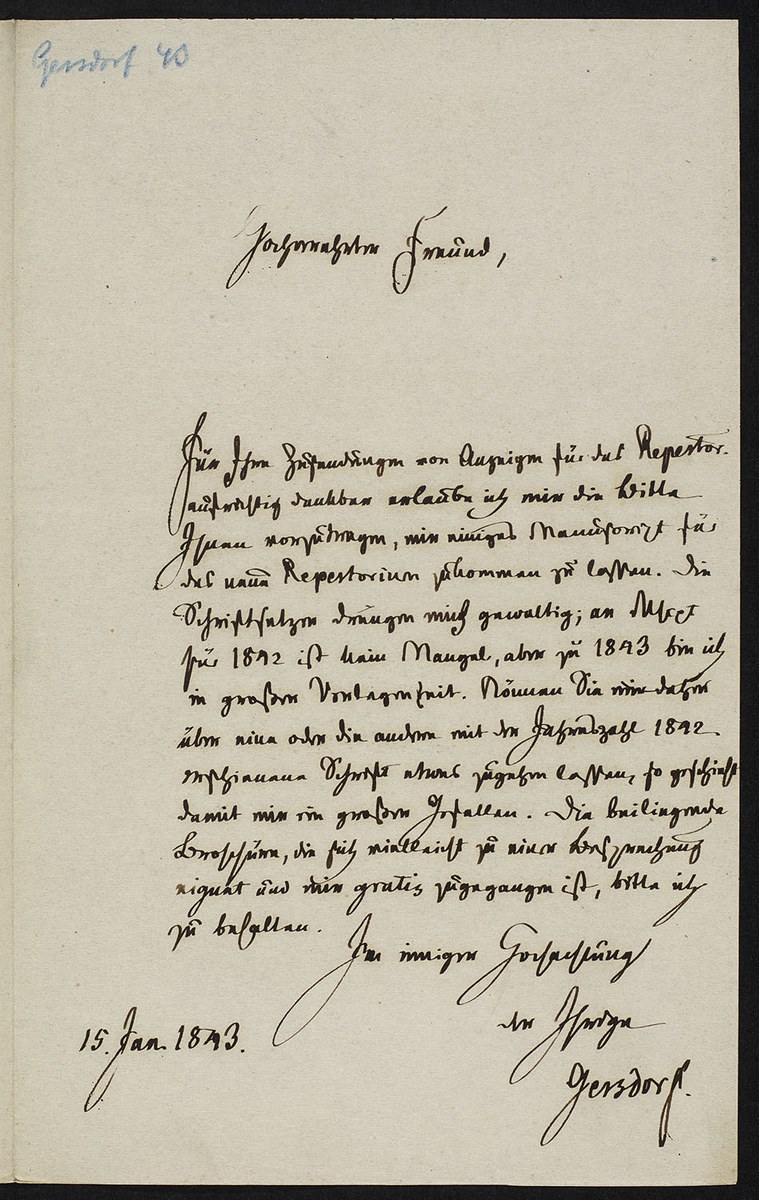 Gersdorf 40
Hochverehrter Freund,
Für Ihre Zusendungen von Anzeigen für das Repertor.
aufrichtig dankbar erlaube ich mir die Bitte
Ihnen vorzutragen, mir einiges Manuscript für
das neue Repertorium zukommen zu lassen. Die
Schriftsetzer drängen mich gewaltig; an Mscpt
für 1842 ist kein Mangel, aber zu 1843 bin ich
in großer Verlegenheit. Können Sie mir daher
über eine oder die andere mit der Jahreszahl 1842
erschienene Schrift etwas zugehen lassen, so geschieht
damit mir ein großer Gefallen. Die beiliegende
Broschüre, die sich vielleicht zu einer Besprechung
eignet und mir gratis zugegangen ist, bitte ich
zu behalten.
In inniger Hochachtung
der Ihrige
15. Jan. 1843.
Gersdorf.